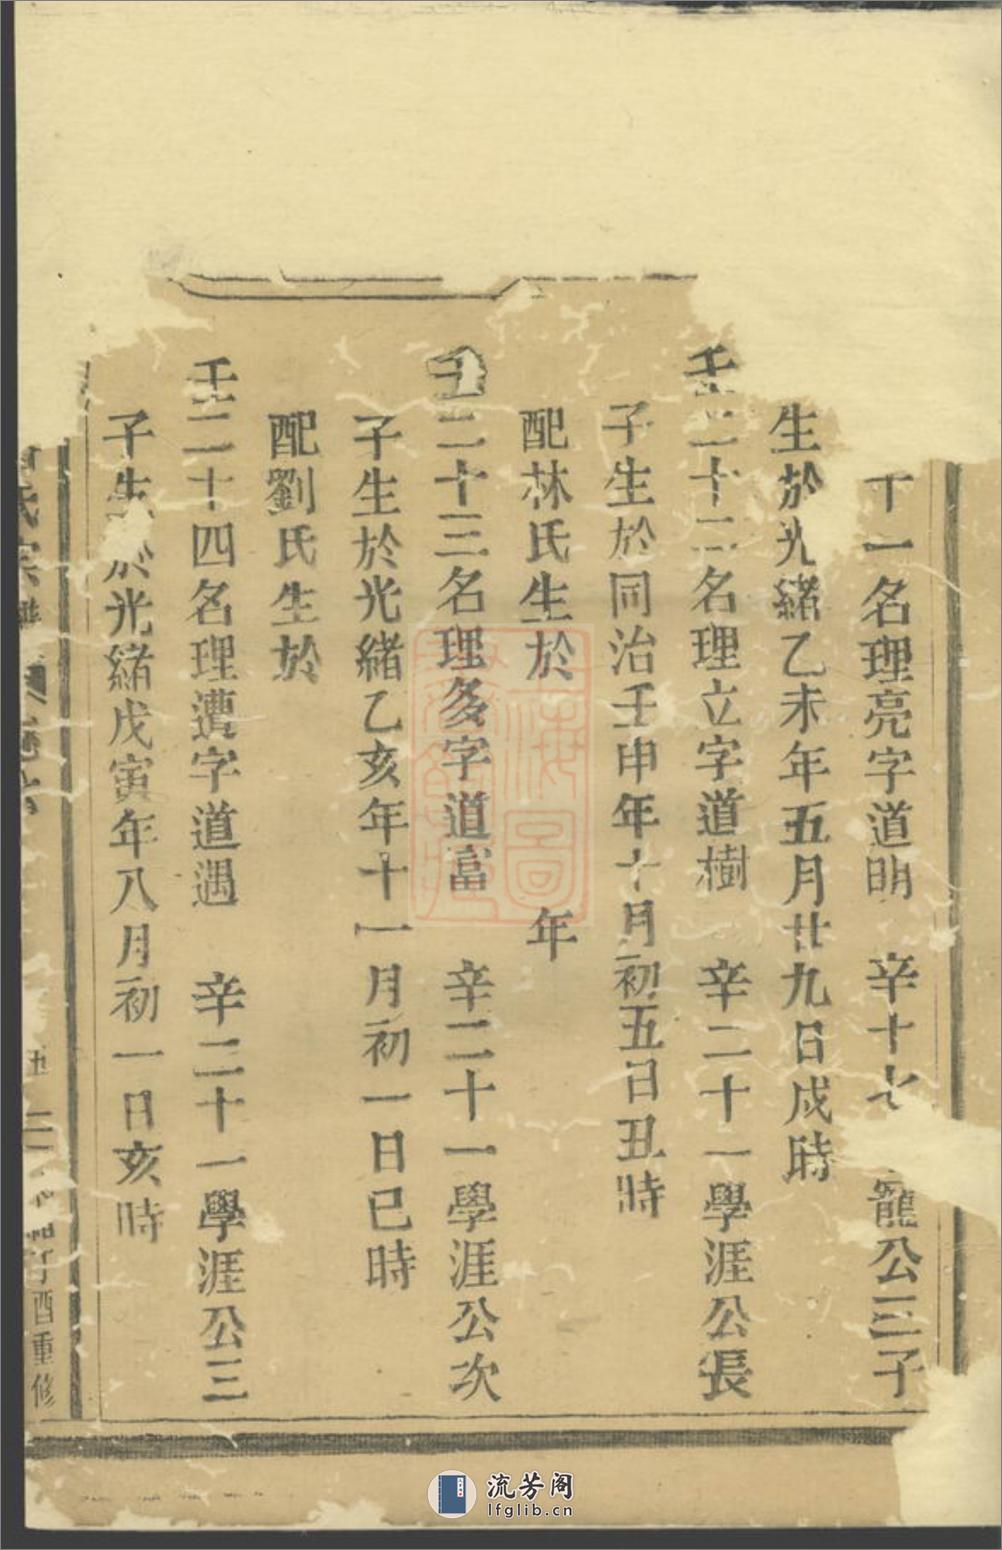 十一名理亮字道明 辛十七 寵公三子
生於光緒乙未年五月廿九日戌時
壬二十二名理立字道樹 辛二十一學涯公長
子生於同治壬申年十月初五日丑時
配林氏生於 年
壬二十三名理多字道富 辛二十一學涯公次
子生於光緒乙亥年十一月初一日巳時
配劉氏生於
壬二十四名理遭字道遇 辛二十一學涯公三
子生於光緒戊寅年八月初一日亥時
氏宗 五 二 丁酉重修
上海圖
流芳阁
lfglib.cn